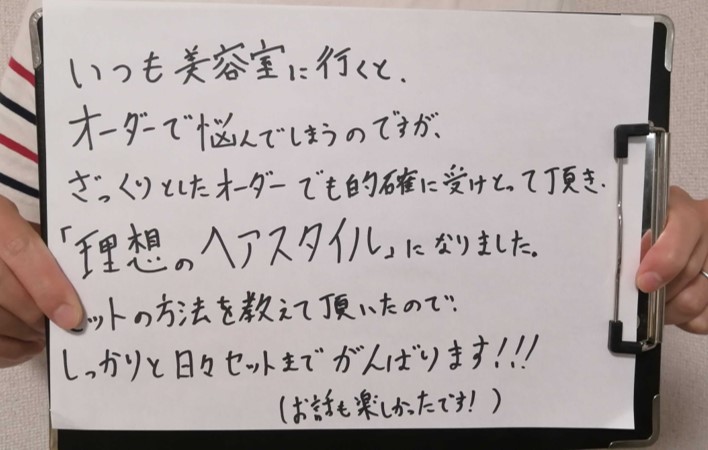 いつも美容室に行くと、
オーダーで悩んでしまうのですが、
ざっくりとしたオーダーでも的確に受けとって頂き、
「理想のヘアスタイル」になりました。
ットの方法を教えて頂いたので、
しっかりと日々セットまでがんばります!!!
(お話も楽しかったです!)